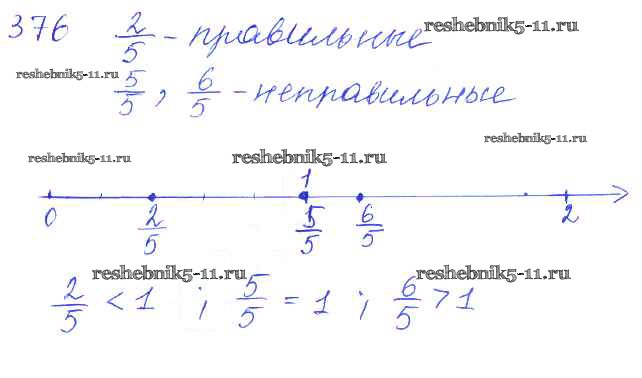 376 2/5 - правильные reshebnik5-11.ru
reshebnik5-11.ru 5/5, 6/5 - неправильные
reshebnik5-11.ru
reshebnik5-11.ru reshebnik5-11.ru
1
0 2/5 5/5 6/5 2
reshebnik5-11.ru reshebnik5-11.ru
2/5 < 1 ; 5/5 = 1 ; 6/5 > 1